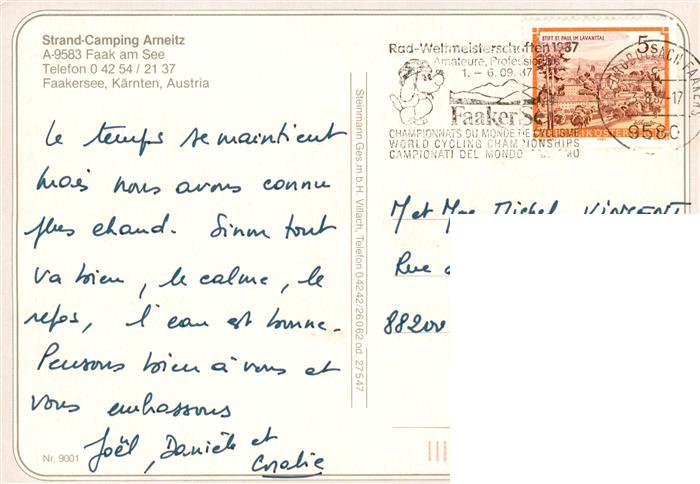 Strand-Camping Arneitz
A-9583 Faak am See
Telefon 0 42 54 / 21 37
Faakersee, Kärnten, Austria
Rad-Weltmeisterschaften 1987
Amateure, Professionals
1. – 6. 09. 87
Faaker See
CHAMPIONNATS DU MONDE DE CYCLISME
WORLD CYCLING CHAMPIONSHIPS
CAMPIONATI DEL MONDO
STIFT ST. PAUL IM LAVANTTAL
5 S
9580
Le temps se maintient
mais nous avons connu
plus chaud. Sinon tout
va bien, le calme, le
repos, l'eau est bonne.
Pensons bien à vous et
vous embrassons
Joël, Danièle et
Coralie
Steinmann Ges.m.b.H. Villach, Telefon 04242/26062 od. 27547
M et Mme Michel VINCENT
Rue
88200
Nr. 9001